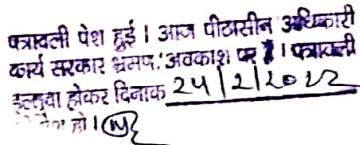 पत्रावली पेश हुई। आज पीठासीन अधिकारी
कार्य सरकार भ्रमण/अवकाश पर है। पत्रावली
होकर दिनांक 24/2/2022
हो।